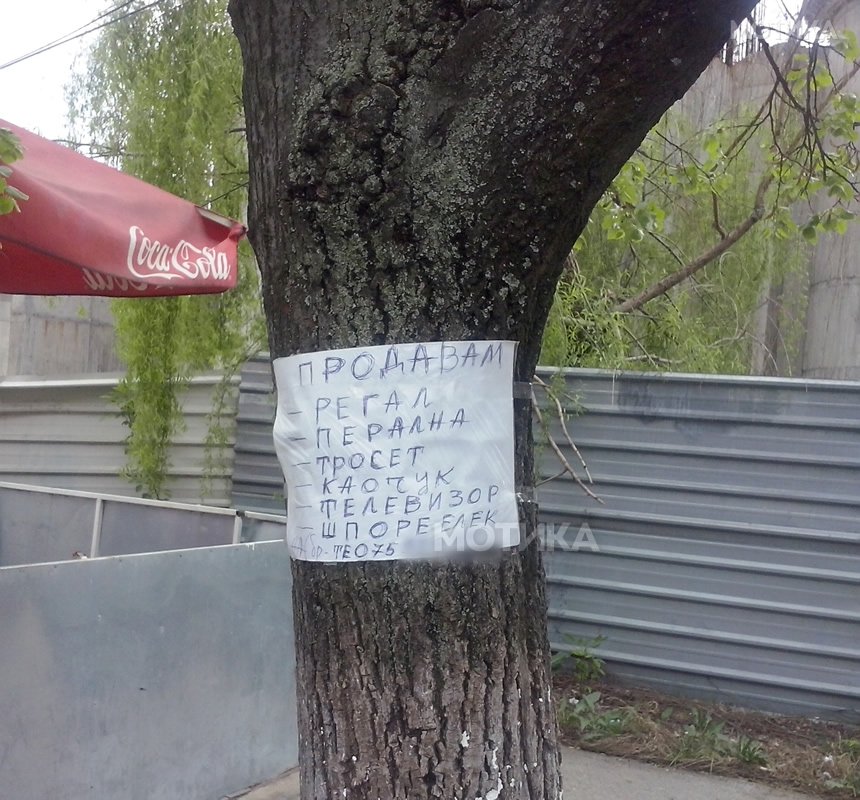 Coca-Cola
ПРОДАВАМ
- РЕГАЛ
- ПЕРАЛНА
- ТРОСЕТ
- КАОЧУК
- ТЕЛЕВИЗОР
- ШПОРЕ ЕЛЕК
бр-ТЕО75
МОТИКА
МОТИКА